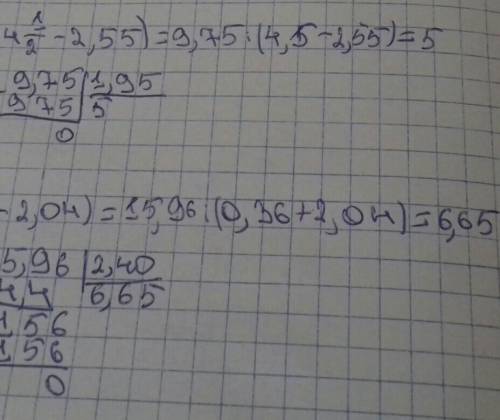 4 1/2 - 2,55) = 9,75 : (4,5 - 2,55) = 5
- 9,75 | 1,95
9 75 | 5
0
- 2,04) = 15,96 : (0,36 + 2,04) = 6,65
5,96 | 2,40
4,4 | 6,65
1,56
1,56
0